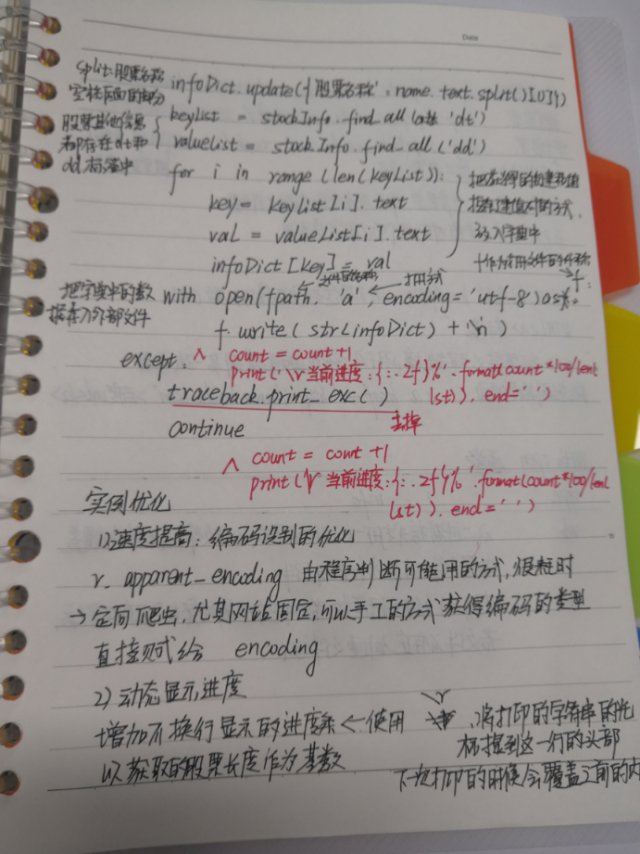 Date
split:股票名称
空格后面的部分
infoDict.update({'股票名称': name.text.split()[0]})
股票其他信息
都存在dt和
dd标签中
keyList = stockInfo.find_all('dt')
valueList = stockInfo.find_all('dd')
for i in range(len(keyList)):
key = keyList[i].text
val = valueList[i].text
infoDict[key] = val
把左边的键和值
按键值对的方式
放入字典中
把字典中的数
据存入外部文件
打开方式
with open(fpath, 'a', encoding='utf-8') as f:
f.write(str(infoDict) + '\n')
except:
count = count+1
print('\r当前进度:{:.2f}%'.format(count*100/len(
lst)), end='')
traceback.print_exc()
去掉
continue
count = count +1
print('\r当前进度:{:.2f}%'.format(count*100/len(
lst)), end='')
实例优化
1)速度提高:编码识别的优化
r.apparent_encoding 由程序判断可能用的方式,很耗时
→定向爬虫,尤其网站固定,可以手工的方式获得编码的类型
直接赋给 encoding
2)动态显示进度
增加不换行显示的进度条←使用 \r,将打印的字符串的光
标提到这一行的头部
以获取的股票长度作为基数
下一次打印的时候会覆盖之前的内